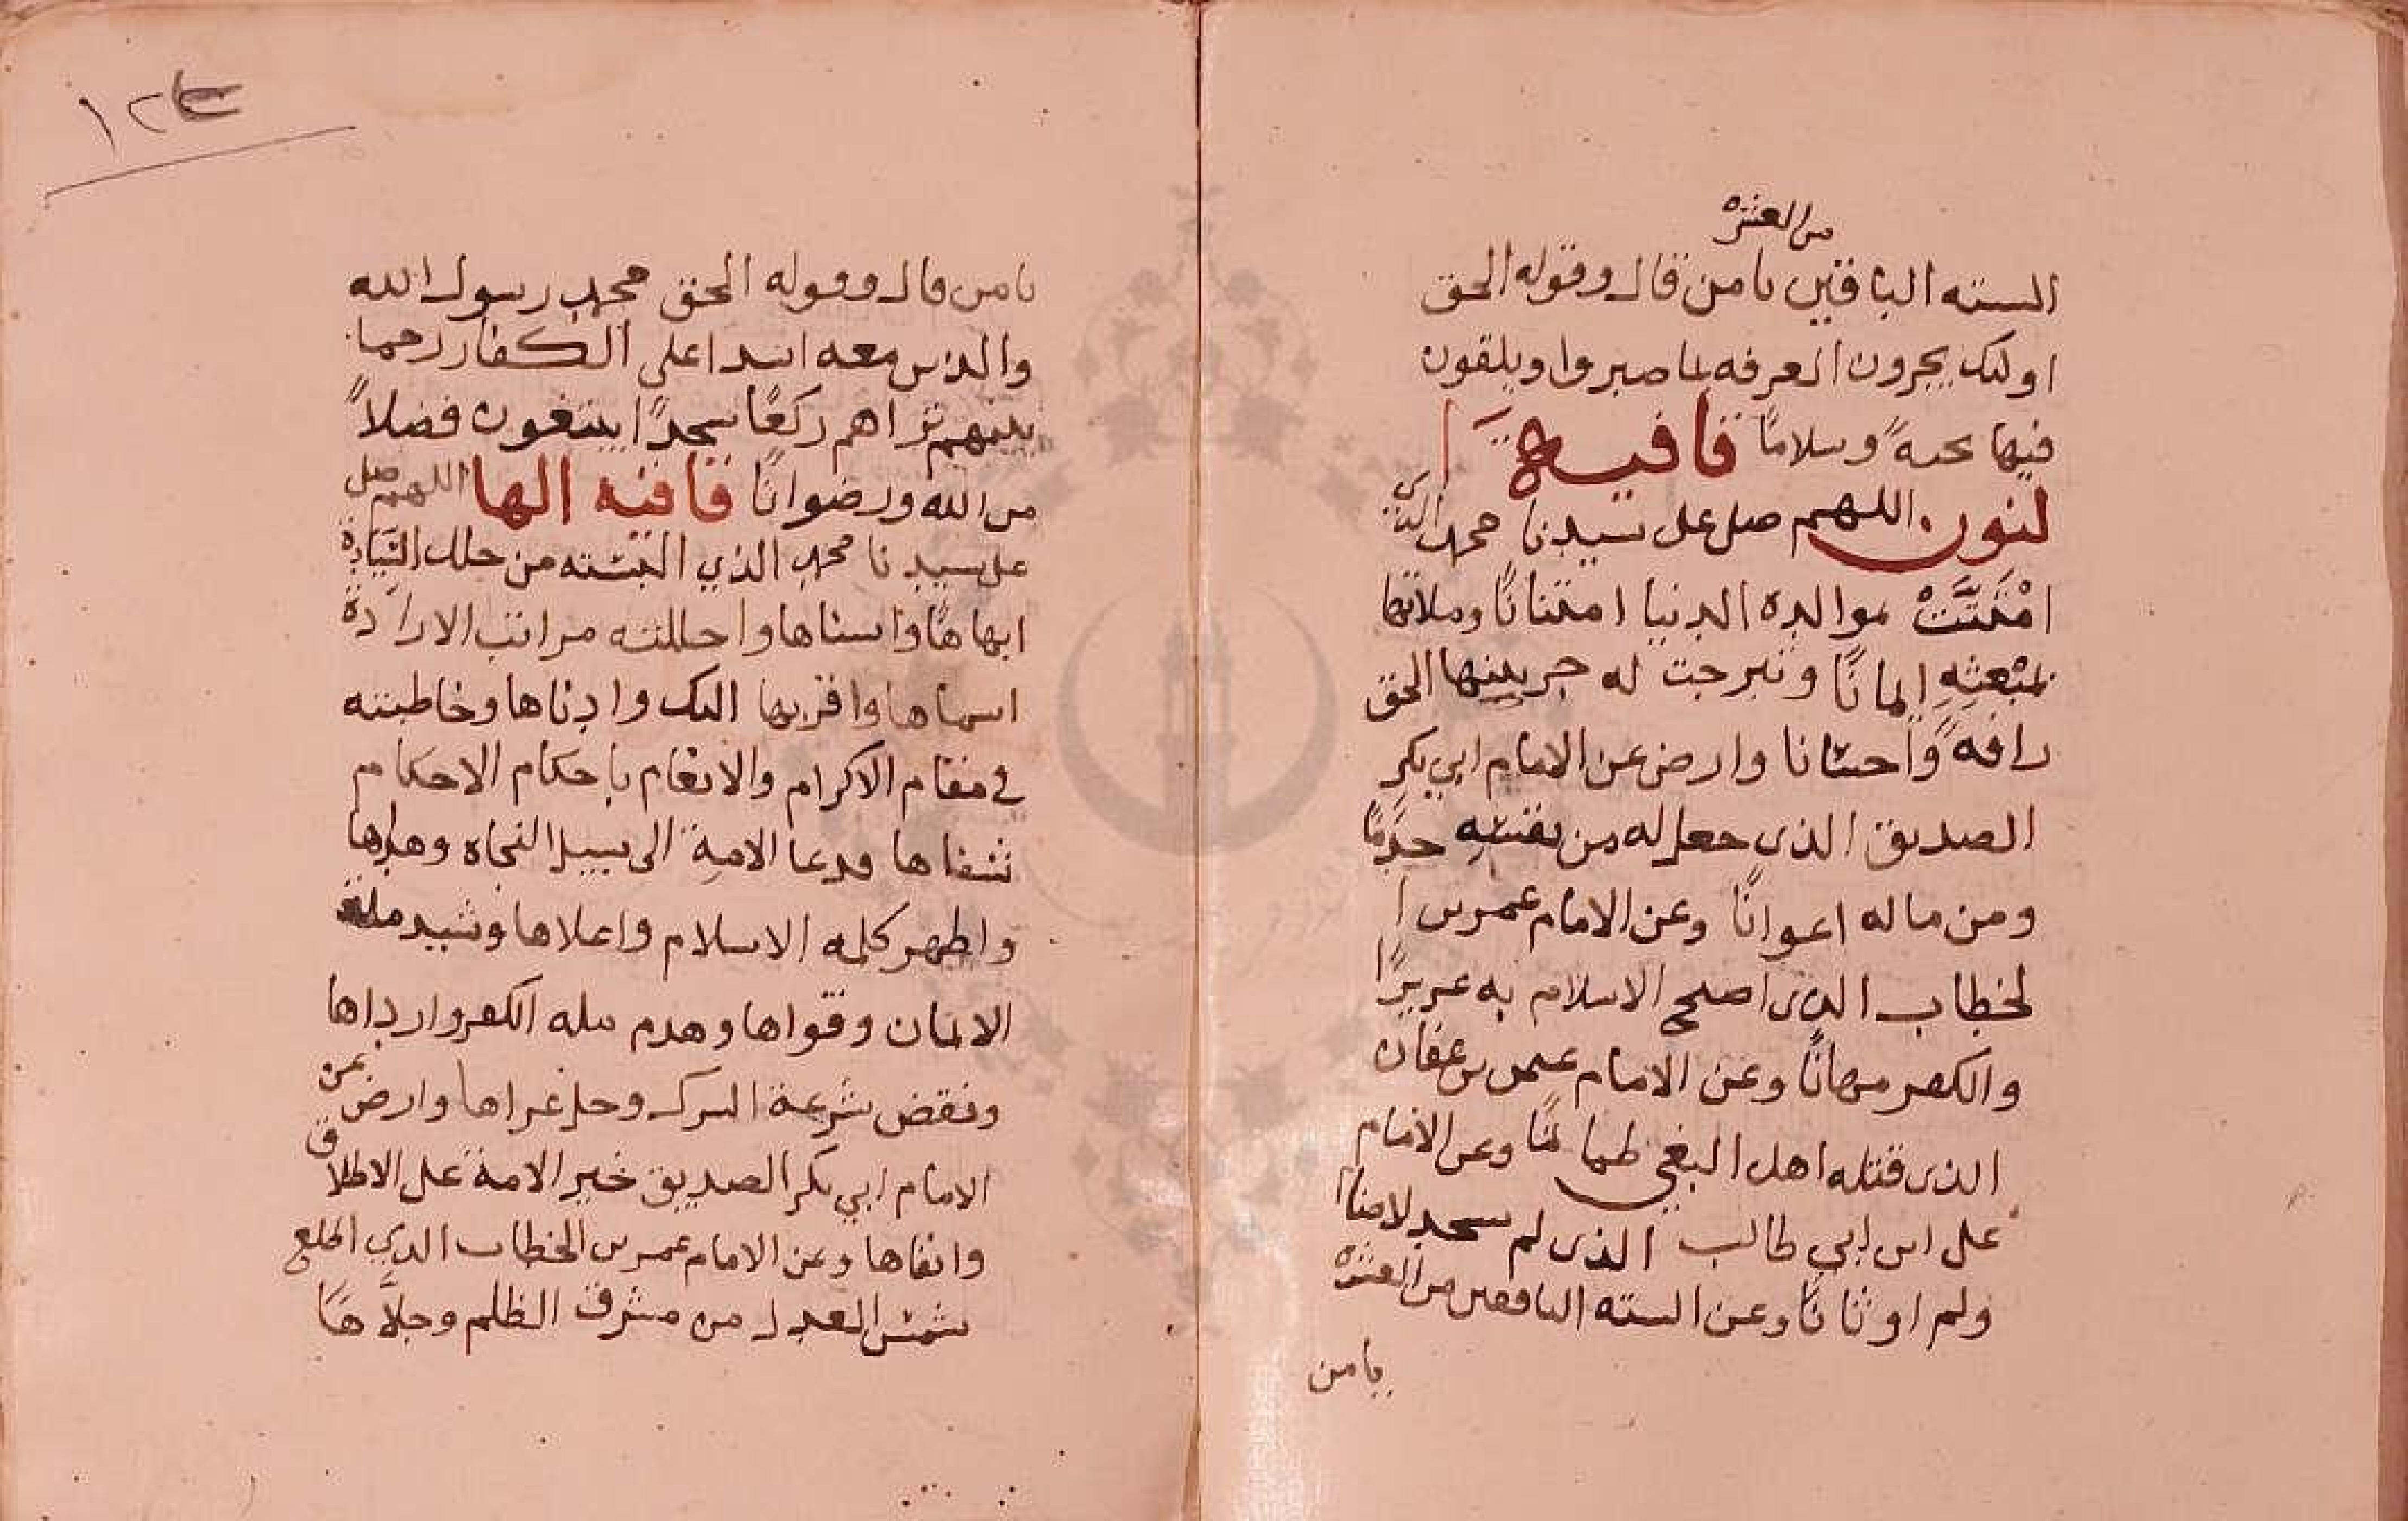 من العشره
السته الباقين يامن قال وقوله الحق
اولئك يجزون الغرفه بما صبروا ويلقون
فيها تحيةً وسلامًا قافية ا
لنون اللهم صل على سيدنا محمد الذي
امْتَنَّتْ بموالده الدنيا امتنانًا وملاتها
بمبْعثِهِ ايمانًا وتبرجت له حر بينها الحق
رافه واحسانا وارض عن الامام ابي بكر
الصديق الذي جعل له من نفسه
ومن ماله اعوانًا وعن الامام عمر بن ا
لخطاب الذي اصبح الاسلام به عزيزًا
والكفر مهانًا وعن الامام عثمن بن عفان
الذي قتله اهل البغي وعن الامام
على ابن ابي طالب الذي لم يسجد لاصنا
ولم اوثانًا وعن السته الباقين من العشره
يامن
١٢٤
يامن قال وقوله الحق محمد رسول الله
والذين معه اشدا على الكفار رحما
بينهم تراهم ركعًا سجدًا يبتغون فضلاً
من الله ورضوانًا قافية الها اللهم صل
على سيدنا محمد الذي البسته من حلل السِّيَادة
ابهاها واسناها واحللته مراتب الارادة
اسماها واقربها اليك وادناها وخاطبته
في مقام الاكرام والانعام باحكام الاحكام
شفاها فدعا الامة الى سبيل النجاه وهداها
واظهر كلمه الاسلام واعلاها وشيد ملة
الايمان وقواها وهدم مله الكفر وارداها
ونقض شرعة الشرك وحل عراها وارض عن
الامام ابي بكر الصديق خير الامة على الاطلاق
واتقاها وعن الامام عمر بن الخطاب الذي اطلع
شمس العدل من مشرق الظلم وجلاَّها